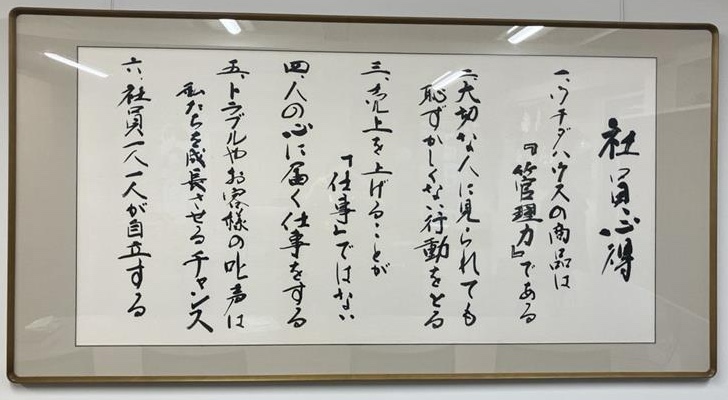 社員心得
一、ウチダハウスの商品は
『管理力』である
二、大切な人に見られても
恥ずかしくない行動をとる
三、売上を上げることが
「仕事」ではない
四、人の心に届く仕事をする
五、トラブルやお客様の叱声は
私たちを成長させるチャンス
六、社員一人一人が自立する